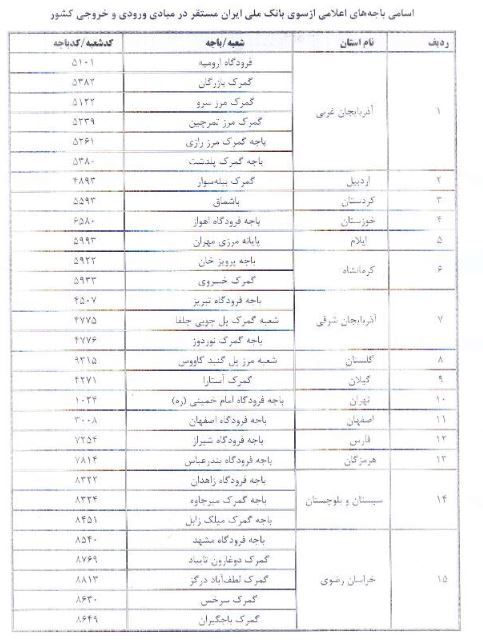 اسامی باجه‌های اعلامی ازسوی بانک ملی ایران مستقر در مبادی ورودی و خروجی کشور
ردیف نام استان شعبه/باجه کدشعبه/کدباجه
۱ آذربایجان غربی فرودگاه ارومیه ۵۱۰۱
گمرک بازرگان ۵۳۸۲
گمرک مرز سرو ۵۱۲۲
گمرک مرز تمرچین ۵۲۳۹
باجه گمرک مرز رازی ۵۲۶۱
باجه گمرک پلدشت ۵۳۸۰
۲ اردبیل گمرک بیله‌سوار ۴۸۹۳
۳ کردستان باشماق ۵۵۹۳
۴ خوزستان باجه فرودگاه اهواز ۶۵۸۰
۵ ایلام پایانه مرزی مهران ۵۹۹۳
۶ کرمانشاه باجه پرویز خان ۵۹۲۳
گمرک خسروی ۵۹۳۳
۷ آذربایجان شرقی باجه فرودگاه تبریز ۴۵۰۷
شعبه گمرک پل چوبی جلفا ۴۷۷۵
باجه گمرک نوردوز ۴۷۷۶
۸ گلستان شعبه مرز پل گنبد کاووس ۹۳۱۵
۹ گیلان گمرک آستارا ۴۲۷۱
۱۰ تهران باجه فرودگاه امام خمینی (ره) ۱۰۲۴
۱۱ اصفهان باجه فرودگاه اصفهان ۳۰۰۸
۱۲ فارس باجه فرودگاه شیراز ۷۲۵۴
۱۳ هرمزگان باجه فرودگاه بندرعباس ۷۸۱۴
۱۴ سیستان و بلوچستان باجه فرودگاه زاهدان ۸۳۲۲
باجه گمرک میرجاوه ۸۳۲۴
باجه گمرک میلگ زابل ۸۴۵۱
۱۵ خراسان رضوی باجه فرودگاه مشهد ۸۵۴۰
گمرک دوغارون تایباد ۸۷۶۹
گمرک لطف‌آباد درگز ۸۸۱۳
گمرک سرخس ۸۶۳۰
گمرک باجگیران ۸۶۴۹